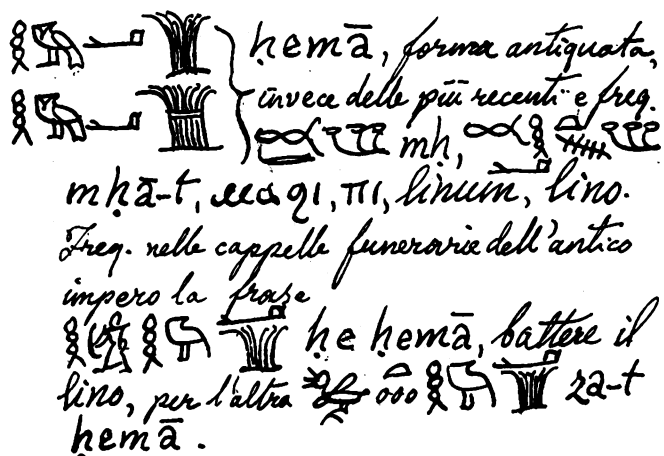 ḥemā, forma antiquata,
invece delle più recenti e freq.
mḥ,
mḥā-t, ⲙⲁϩⲓ, ⲡⲓ, linum, lino.
Freq. nelle cappelle funerarie dell'antico
impero la frase
ḥe ḥemā, battere il
lino, per l'altra za-t
ḥemā.